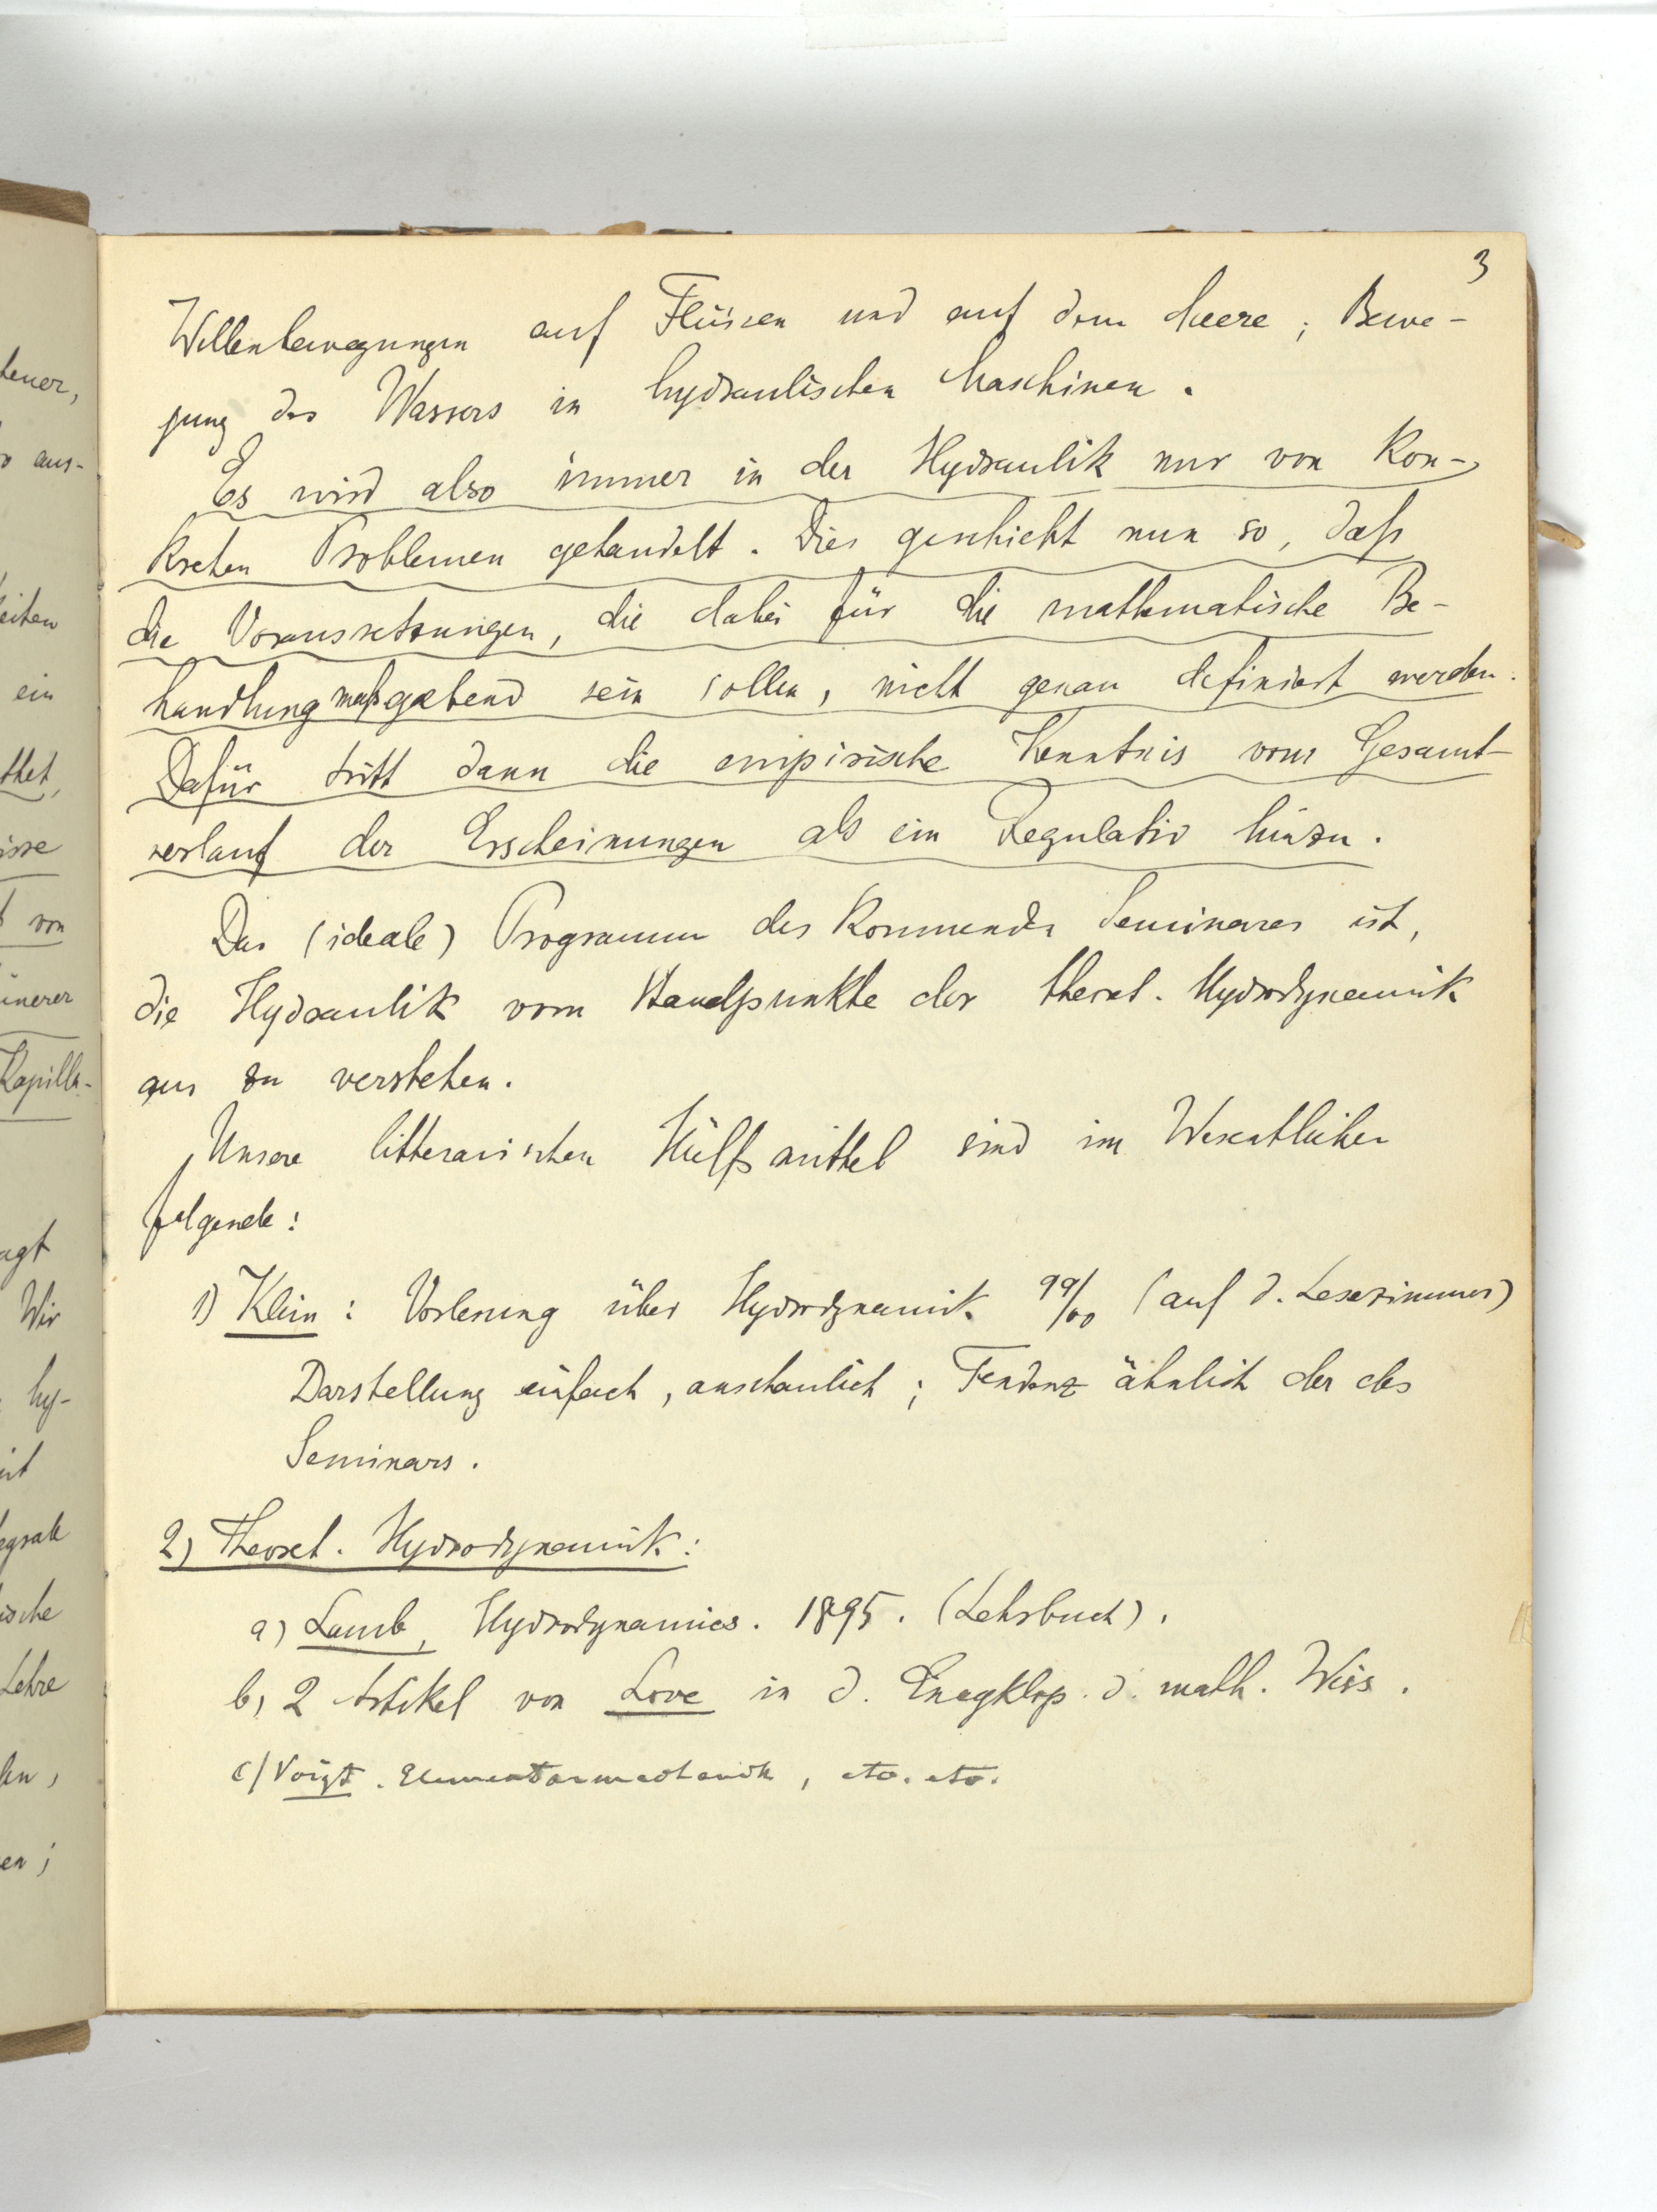 3
Wellenbewegungen auf Flüssen und auf dem Meere; Bewe-
gung des Wassers in hydraulischen Maschinen.
Es wird also immer in der Hydraulik nur von kon-
kreten Problemen gehandelt. Dies geschieht nun so, daß
die Voraussetzungen, die dabei für die mathematische Be-
handlung maßgebend sein sollen, nicht genau definiert werden.
Dafür tritt dann die empirische Kenntnis vom Gesamt-
verlauf der Erscheinungen als ein Regulativ hinzu.
Das (ideale) Programm des kommenden Seminares ist,
die Hydraulik vom Standpunkte der theoret. Hydrodynamik
aus zu verstehen.
Unsere litterarischen Hülfsmittel sind im Wesentlichen
folgende:
1) Klein: Vorlesung über Hydrodynamik 99/00 (auf d. Lesezimmer)
Darstellung einfach, anschaulich; Tendenz ähnlich der des
Seminars.
2) Theoret. Hydrodynamik:
a) Lamb, Hydrodynamics. 1895. (Lehrbuch).
b) 2 Artikel von Love in d. Encyklop. d. math. Wiss.
c) Voigt. Elementarmechanik, etc. etc.
teuer,
aus-
eiten
ein
thet,
isse
von
inerer
Kapilla-
agt
Wir
hy-
egrale
ische
Lehre
en,
en;